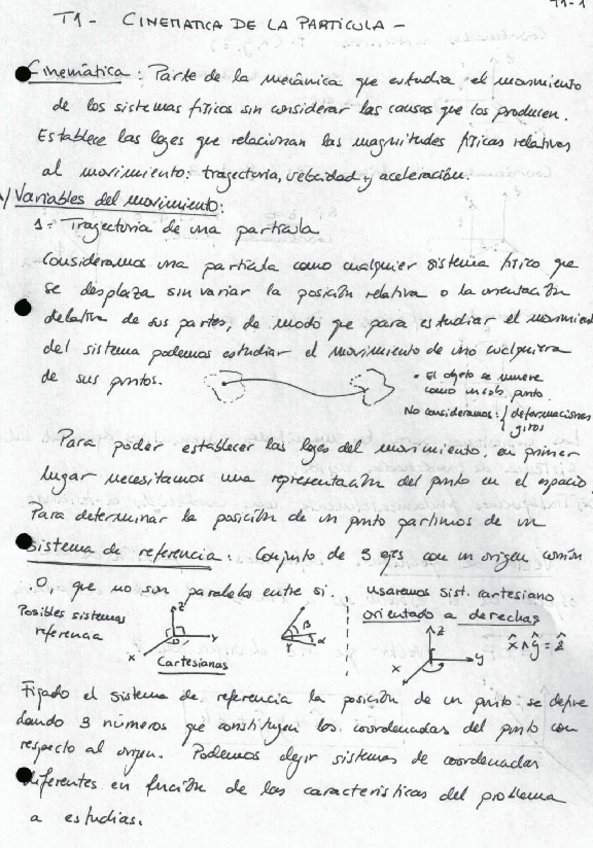 T1-1
T1- CINEMATICA DE LA PARTICULA -
Cinemática: Parte de la mecánica que estudia el movimiento
de los sistemas físicos sin considerar las causas que los producen.
Establece las leyes que relacionan las magnitudes físicas relativas
al movimiento: trayectoria, velocidad y aceleración.
A/ Variables del movimiento:
1- Trayectoria de una partícula
Consideramos una partícula como cualquier sistema físico que
se desplaza sin variar la posición relativa o la orientación
relativa de sus partes, de modo que para estudiar el movimiento
del sistema podemos estudiar el movimiento de uno cualquiera
de sus puntos.
• El objeto se mueve
como un solo punto.
No consideramos: / deformaciones
giros
Para poder establecer las leyes del movimiento, en primer
lugar necesitamos una representación del punto en el espacio.
Para determinar la posición de un punto partimos de un
sistema de referencia: Conjunto de 3 ejes con un origen común
O, que no son paralelos entre si.
Usaremos sist. cartesiano
orientado a derechas
Posibles sistemas
referencia
z
Y
x
O
Cartesianas
β
α
γ
z
y
x
x̂ ∧ ŷ = ẑ
Fijado el sistema de referencia la posición de un punto se define
dando 3 números que constituyen las coordenadas del punto con
respecto al origen. Podemos elegir sistemas de coordenadas
diferentes en función de las características del problema
a estudiar.